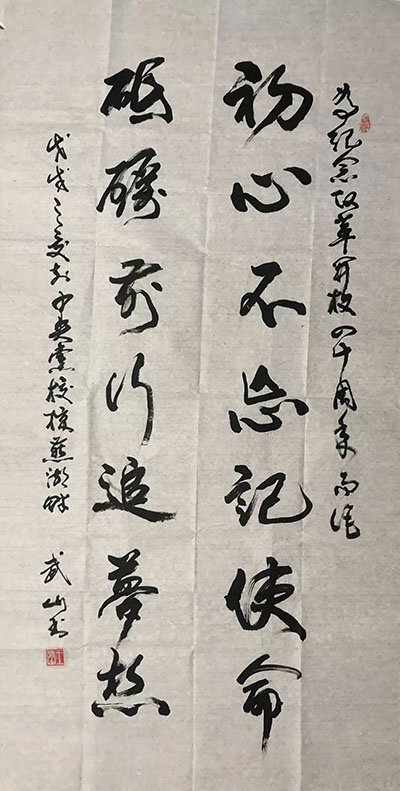 为纪念改革开放四十周年而作
初心不忘记使命
砥礪前行追夢想
戊戌之夏於中央党校掠燕湖畔 武山书